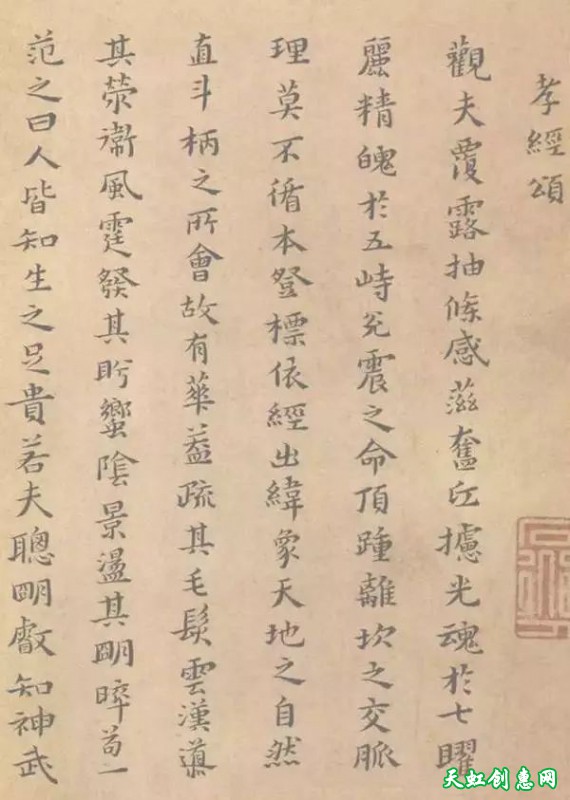 孝經頌
觀夫覆露抽條感滋奮攄光魂於七曜
麗精魄於五峙兊震之命頂踵離坎之交脈
理莫不循本登標依經出緯象天地之自然
直斗柄之所會故有華葢疏其毛髮雲漢
其滎衛風霆發其肸蠁陰景盪其明晬苟一
范之曰人皆知生之足貴若夫聰明叡知神武
天虹创惠网